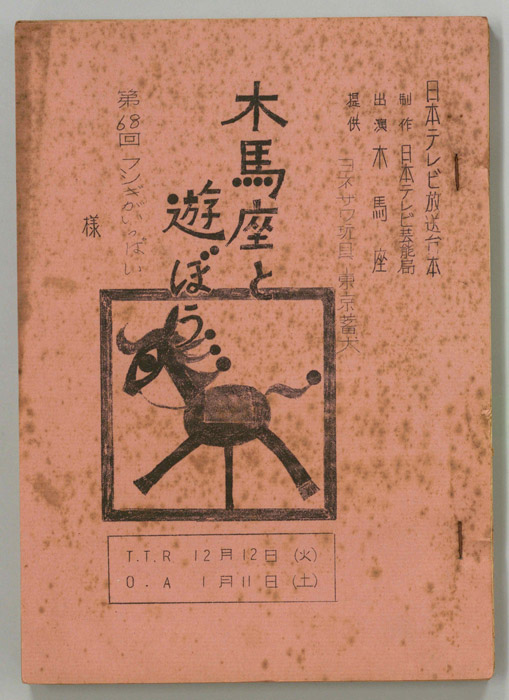 日本テレビ放送台本
制作 日本テレビ芸能局
出演 木馬座
提供 ヨネザワ玩具 東京蓄犬
木馬座と
遊ぼう…
第68回 フシギがいっぱい
様
T.T.R 12月12日(火)
O.A 1月11日(土)